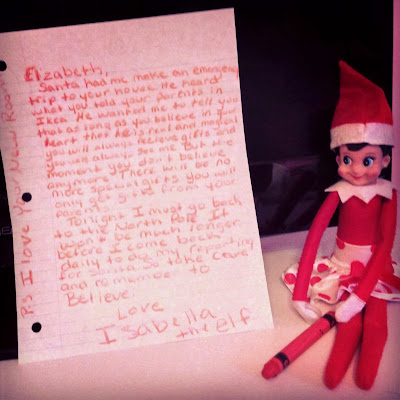 Elizabeth,
Santa had me make an emergency
trip to your house. He heard
what you told your parents in
Ikea. He wanted me to tell you
that as long as you believe in your
heart that he is real and magical
you will always recieve gifts and
you will always see me. But the
moment you don't believe
anymore. There will be no
more special gifts you will
only get give from your
parents.
Tonight I must go back
to the North Pole. It
wont be much longer
before I come back
daily to do my reporting
for Santa. So take care
and remember to
Believe.
Love
Isabella
the elf
Ps I love your New Room